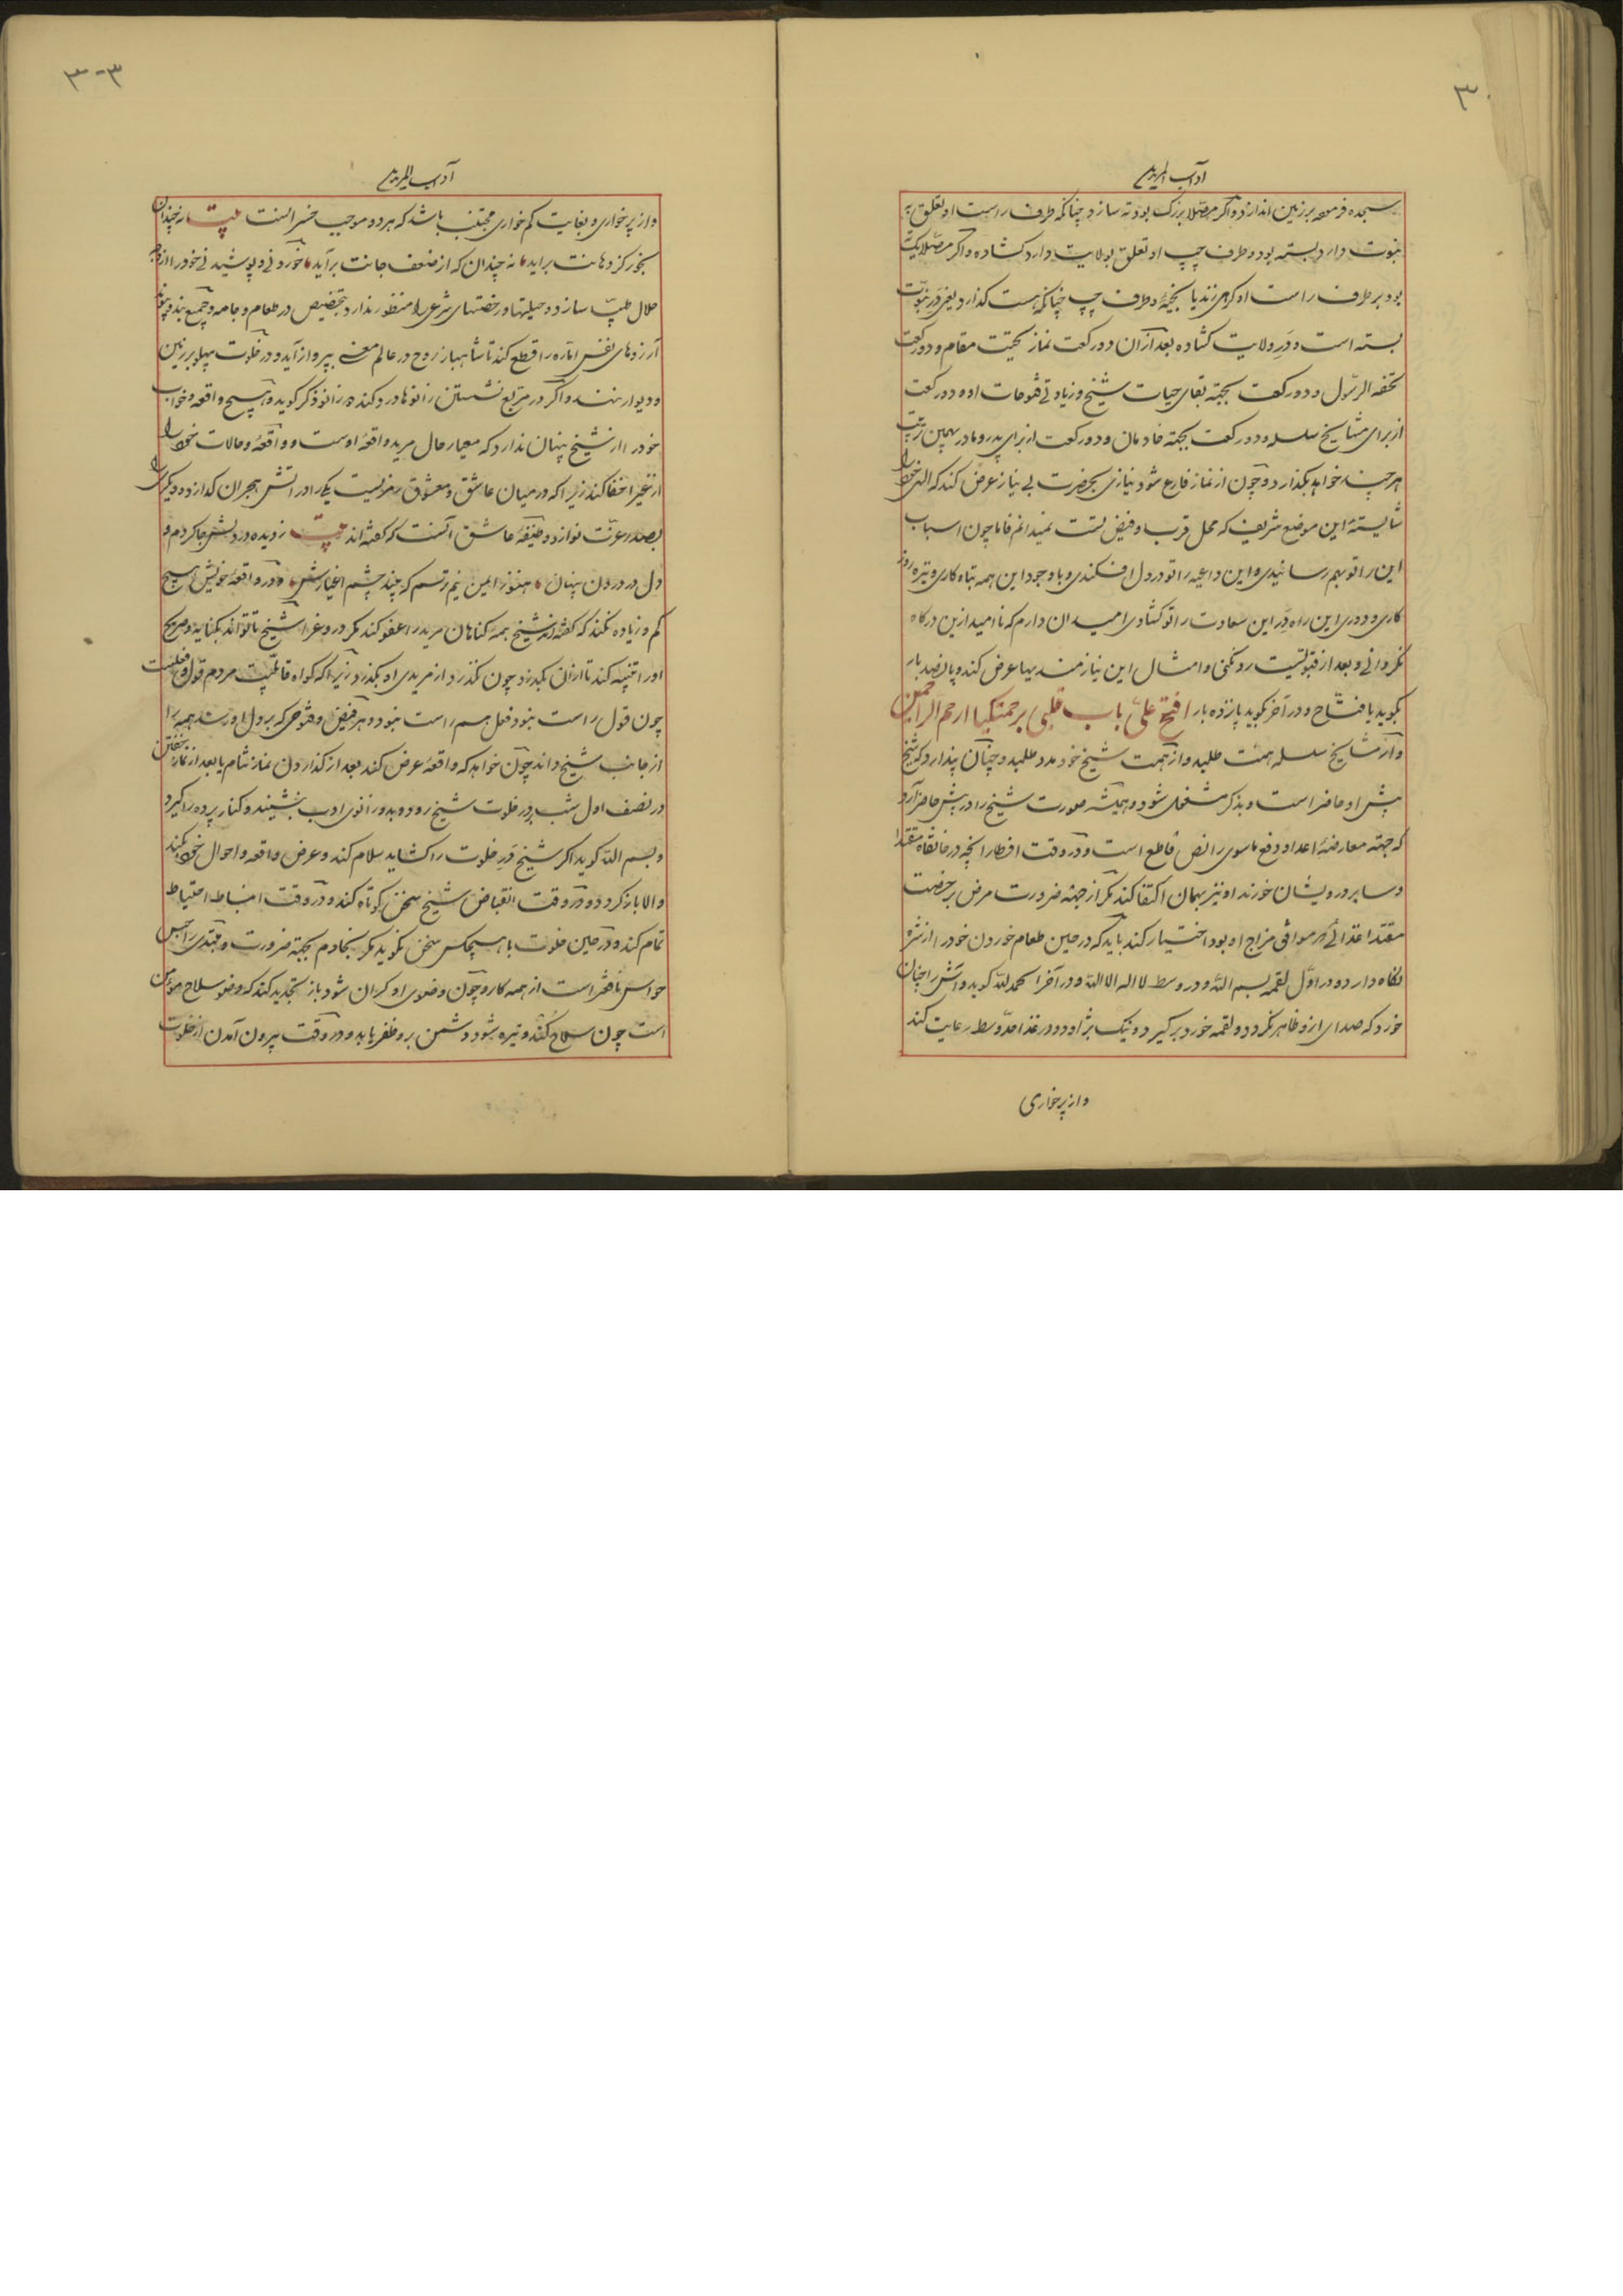 ۳۰
آداب المریدین
سجده فرمود بر زمین اندازد و اگر مصلا بزرک بود ته سازد چنانکه طرف راست او تعلق به
نبوت دارد بسته بود و طرف چپ او تعلق بولایت دارد کشاده و اکر مصلا یک ته
بود بر طرف راست او کرهی زند یا بخیهٔ و طرف چپ چنانکه هست کذارد یعنی در نبوت
بسته است و در ولایت کشاده بعد از ان دو رکعت نماز تحیت مقام و دو رکعت
تحفه الرسول و دو رکعت بجهة بقای حیات شیخ و زیادتی فتوحات او و دو رکعت
از برای مشایخ سلسله و دو رکعت بجهة خادمان و دو رکعت از برای پدر و مادر بهمین ترتیب
هر چند خواهد بکذارد و چون از نماز فارغ شود نیازی بحضرت بی نیاز عرض کند که الهی خود را
شایستهٔ این موضع شریف که محل قرب و فیض تست نمیدانم فاما چون اسباب
این را تو بهم رسانیدی و این داعیه را تو در دل افکندی و با وجود این همه تباه کاری و تیره روز
کاری و دوری این راه در این سعادت را تو کشادی امیدان دارم که نا امید ازین درکاه
نکردانی و بعد از قبولیت رد نکنی و امثال این نیازمندیها عرض کند و پانصد بار
بکوید یا فتاح و در آخر بکوید پانزده بار افتح علی باب قلبی برحمتک یا ارحم الراحمین
و از مشایخ سلسله همت طلبد و از همت شیخ خود مدد طلبد و چنان پندارد که شیخ
پیش او حاضر است و بذکر مشغول شود و همیشه صورت شیخ را در پیش حاضر آرد
که جهة معارضهٔ اعدا و دفع ماسوی را نص قاطع است و در وقت افطار انچه در خانقاه مقتدا
و سایر درویشان خورند او نیز بهمان اکتفا کند مکر از جهة ضرورت مرض برخصت
مقتدا غذائی که موافق مزاج او بود اختیار کند باید که در حین طعام خوردن خود را از شره
نکاه دارد و در اول لقمه بسم الله و در وسط لا اله الا الله و در آخر الحمد لله کوید و آش را چنان
خورد که صدای از و ظاهر نکردد و لقمه خورد برکیرد و نیک بژاود و در غذا حد وسط رعایت کند
و از پر خواری
۳۰۳
آداب المریدین
و از پر خواری و بغایت کم خواری مجتنب باشد که هر دو موجب خسرانست بیت نه چندان
بخور کز دهانت براید نه چندان که از ضعف جانت برآید خوردنی و پوشیدنی خود را از وجه
حلال طیب سازد و حیلتها و رخصتهای شرعی را منظور ندارد بتخصیص در طعام و جامه و جمیع بند و پیوند
آرزوهای نفس اماره را قطع کند تا شاهباز روح در عالم معنی بپرواز آید و در خلوت پهلو بر زمین
و دیوار ننهد و اگر در مربع نشستن زانوها درد کند دو زانو ذکر کوید و هیچ واقعه و خواب
خود را از شیخ پنهان ندارد که معیار حال مرید واقعهٔ اوست و واقعه و حالات خود را
از غیر اخفا کند زیرا که در میان عاشق و معشوق رمزیست یکی را در اتش هجران کدازد و دیکری را
بصدر عزت نوازد و وظیفهٔ عاشق آنست که کفته اند بیت ز دیده در دلش جا کردم و
دل در درون پنهان هنوز ایمن نیم ترسم که بیند چشم اغیارش و در واقعهٔ خویش هیچ
کم و زیاده نکند که کفته اند شیخ همه کناهان مرید را عفو کند مکر دروغ را شیخ تا تواند بکنایه و صریح
او را تنبیه کند تا از ان بکذرد چون نکذرد از مریدی او بکذرد زیرا که کواه قابلیت مردم قول و فعلست
چون قول راست نبود فعل هم راست نبود و هر فیض و فتوحی که بر دل او رسد همه را
از جانب شیخ داند چون خواهد که واقعهٔ عرض کند بعد از کذاردن نماز شام یا بعد از نماز خفتن
در نصف اول شب بدر خلوت شیخ رود و بدو زانوی ادب بنشیند و کنار پرده را کیرد
و بسم الله کوید اکر شیخ در خلوت را کشاید سلام کند و عرض واقعه و احوال خود بکند
و الا باز کردد و در وقت انقباض شیخ سخن کوتاه کند و در وقت انبساط احتیاط
تمام کند و در حین خلوت با هیچکس سخن نکوید مکر بخادم بجهة ضرورت و مبتدی را حبس
حواس نافعتر است از همه کار و چون وضوی او کران شود باز تجدید کند که وضو سلاح مؤمن
است چون سلاح کند و تیره شود دشمن برو ظفر یابد و در وقت بیرون آمدن از خلوت